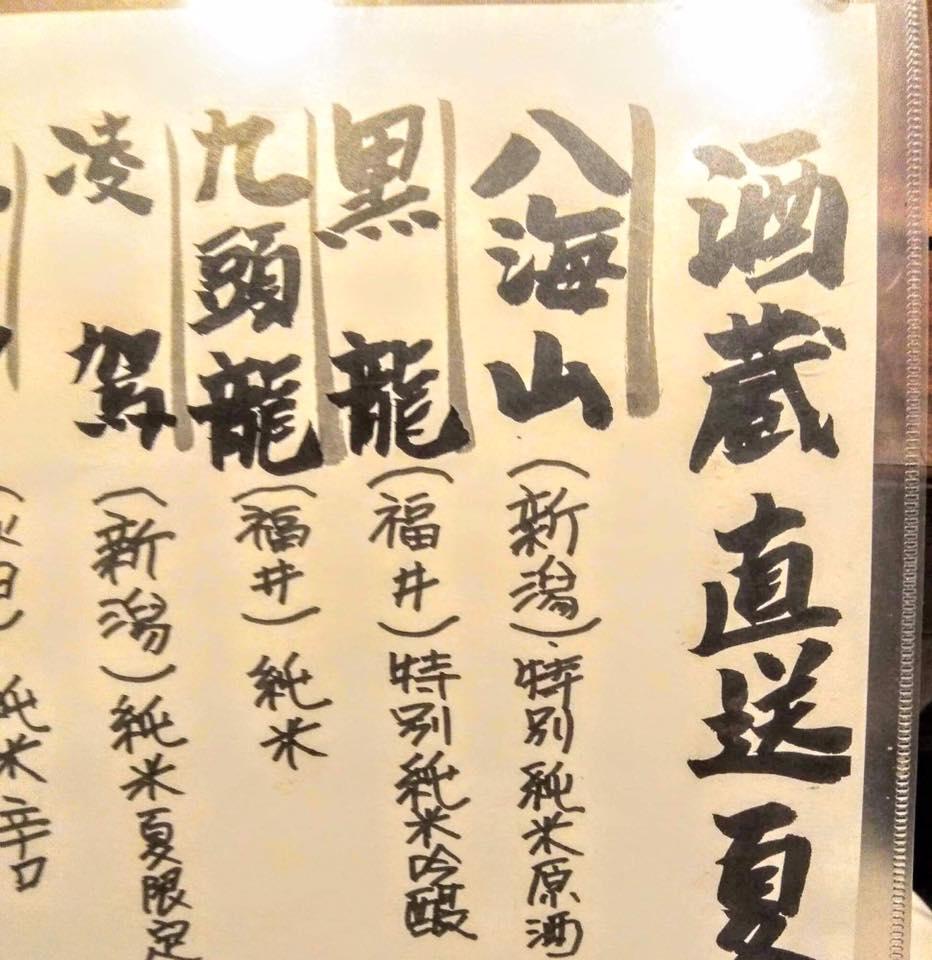 酒蔵直送夏
八海山(新潟)特別純米原酒
黒龍(福井)特別純米吟醸
九頭龍(福井)純米
凌駕(新潟)純米夏限定
純米辛口